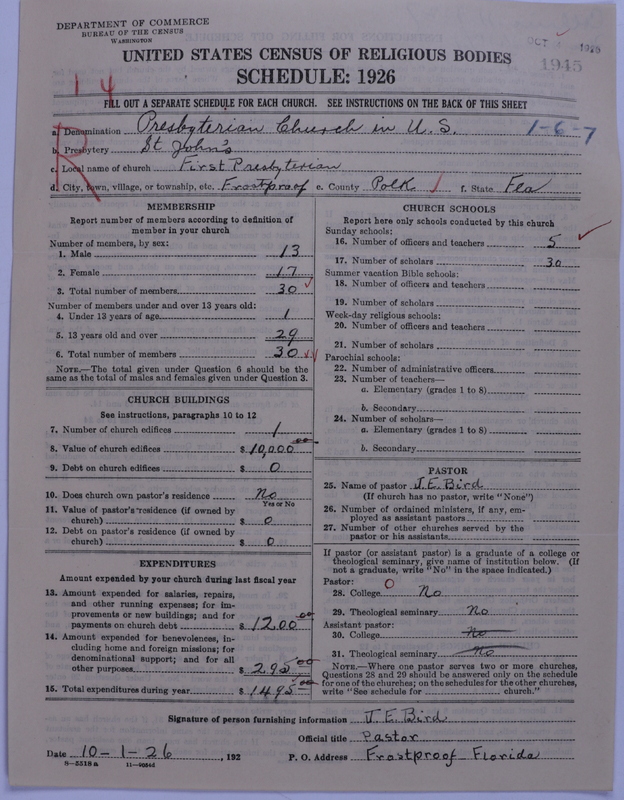 DEPARTMENT OF COMMERCE
BUREAU OF THE CENSUS
WASHINGTON
OCT 1926
1945
UNITED STATES CENSUS OF RELIGIOUS BODIES
SCHEDULE: 1926
14
FILL OUT A SEPARATE SCHEDULE FOR EACH CHURCH. SEE INSTRUCTIONS ON THE BACK OF THIS SHEET
R
a. Denomination Presbyterian Church in U.S. 1-6-7
b. Presbytery St John's
c. Local name of church First Presbyterian
d. City, town, village, or township, etc. Frostproof e. County Polk f. State Fla
MEMBERSHIP
Report number of members according to definition of
member in your church
Number of members, by sex:
1. Male 13
2. Female 17
3. Total number of members 30
Number of members under and over 13 years old:
4. Under 13 years of age 1
5. 13 years old and over 29
6. Total number of members 30
NOTE.—The total given under Question 6 should be the
same as the total of males and females given under Question 3.
CHURCH BUILDINGS
See instructions, paragraphs 10 to 12
7. Number of church edifices 1
8. Value of church edifices $ 10,000 00
9. Debt on church edifices $ 0
10. Does church own pastor's residence No
Yes or No
11. Value of pastor's residence (if owned by
church) $ 0
12. Debt on pastor's residence (if owned by
church) $ 0
EXPENDITURES
Amount expended by your church during last fiscal year
13. Amount expended for salaries, repairs,
and other running expenses; for im-
provements or new buildings; and for
payments on church debt $ 1200 00
14. Amount expended for benevolences, in-
cluding home and foreign missions; for
denominational support; and for all
other purposes $ 295 00
15. Total expenditures during year $ 1495 00
CHURCH SCHOOLS
Report here only schools conducted by this church
Sunday schools:
16. Number of officers and teachers 5
17. Number of scholars 30
Summer vacation Bible schools:
18. Number of officers and teachers
19. Number of scholars
Week-day religious schools:
20. Number of officers and teachers
21. Number of scholars
Parochial schools:
22. Number of administrative officers
23. Number of teachers—
a. Elementary (grades 1 to 8)
b. Secondary
24. Number of scholars—
a. Elementary (grades 1 to 8)
b. Secondary
PASTOR
25. Name of pastor J.E. Bird
(If church has no pastor, write "None")
26. Number of ordained ministers, if any, em-
ployed as assistant pastors
27. Number of other churches served by the
pastor or his assistants
If pastor (or assistant pastor) is a graduate of a college or
theological seminary, give name of institution below. (If
not a graduate, write "No" in the space indicated.)
Pastor: O
28. College No
29. Theological seminary No
Assistant pastor:
30. College No
31. Theological seminary No
NOTE.—Where one pastor serves two or more churches,
Questions 28 and 29 should be answered only on the schedule
for one of the churches; on the schedules for the other churches,
write "See schedule for church."
Signature of person furnishing information J.E. Bird
Official title Pastor
Date 10-1-26, 192 P. O. Address Frostproof Florida
8-5318 a